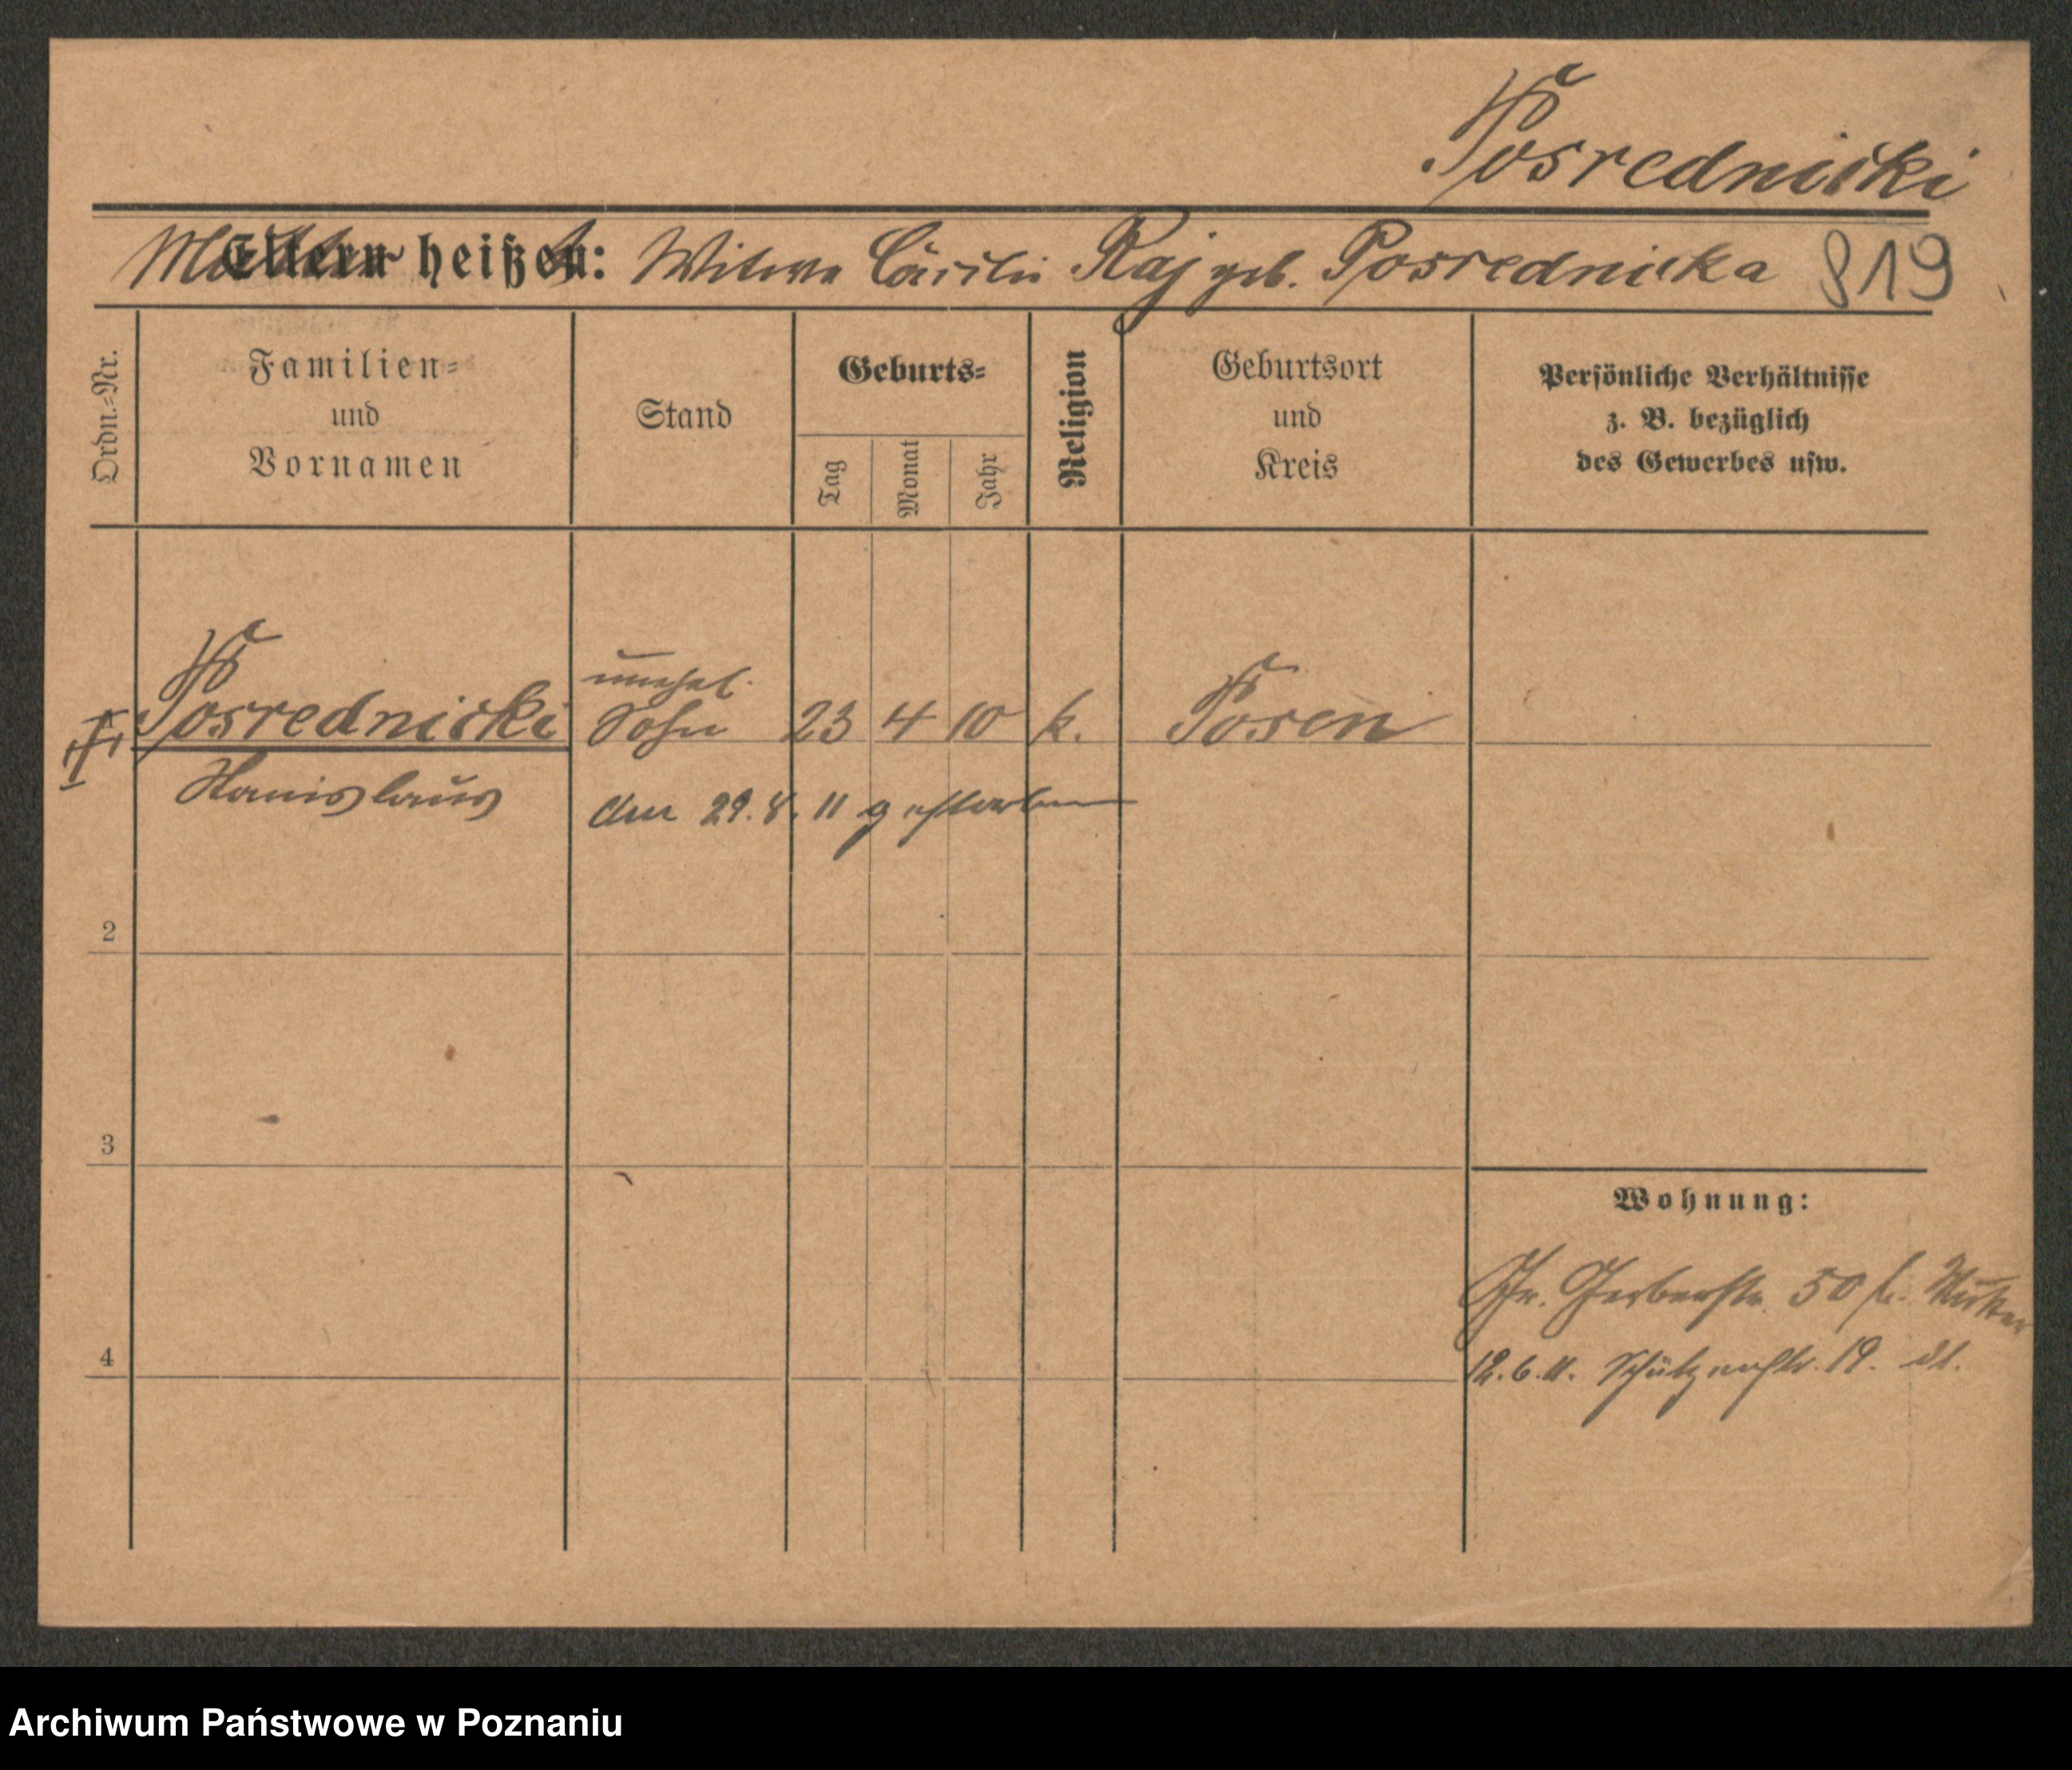 Posrednicki
Mutter heißt: Witwe Cäcilie Raj geb. Posrednicka 819
Ordn.-Nr.
Familien-
und
Vornamen
Stand
Geburts-
Tag
Monat
Jahr
Religion
Geburtsort
und
Kreis
Persönliche Verhältnisse
z. B. bezüglich
des Gewerbes usw.
unehel.
Posrednicki Sohn 23 4 10 k. Posen
Stanislaus
den 29. 8. 11 gestorben
2
3
4
Wohnung:
Gr. Gerberstr. 50 b. Mutter
12. 6. 11. Schützenstr. 19.
Archiwum Państwowe w Poznaniu